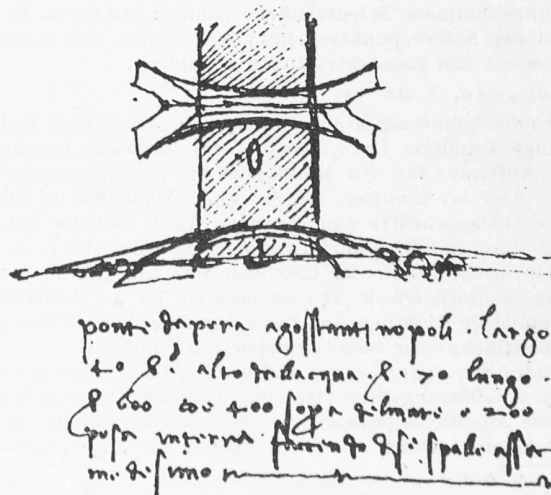 ponte da pera a gosstantinopoli largo
40 br alto dallacqua br 70 lungo
br 600 coe 400 sopra del mare e 200
posa in terra faciendo di se spalle asse
medesimo